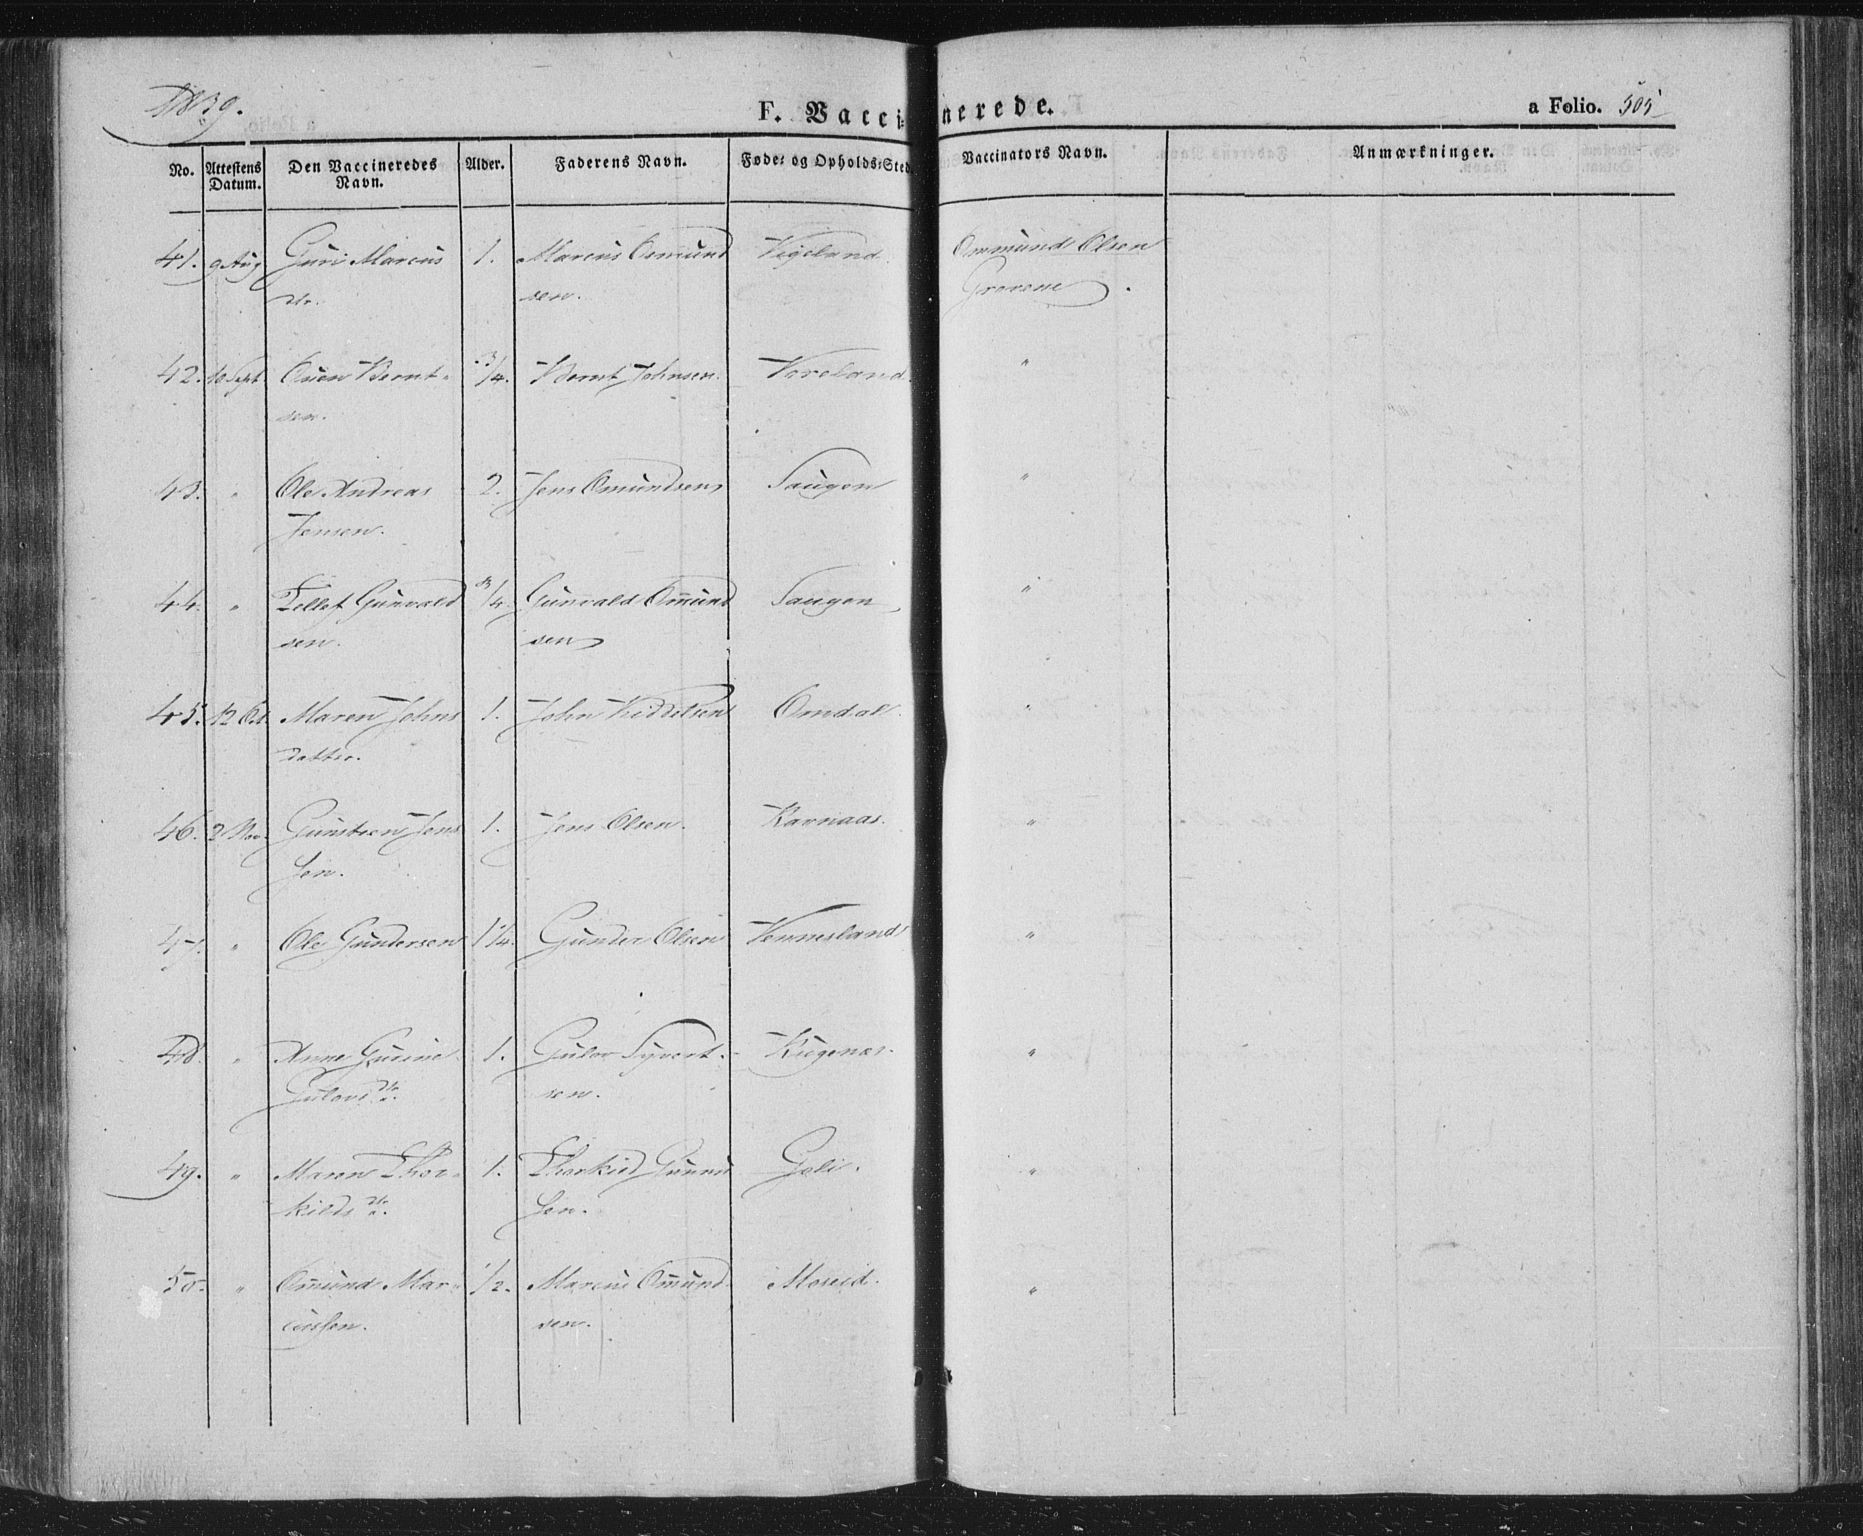 1839.
F. Vaccinerede.
a Folio. 505
No. Attestens Datum. Den Vaccineredes Navn. Alder. Faderens Navn. Føde= og Opholds=Sted. Vaccinators Navn. Anmærkninger.
41. 9 Aug Guri Marcus 1. Marcus Osmund Vigeland. Ommund Olsen
dr. sen. Grovene.
42. 10 Sept Osen Bernt- 3/4. Bernt Johnsen. Voreland. "
sen.
43. " Ole Andreas 2. Jens Omundsen Saugen "
Jensen.
44. " Tellef Gunvald 3/4. Gunvald Omund Saugen "
sen. sen
45. 12 Oct Maren Johns 1. John Kiddelsen Omdal. "
datter.
46. 2 Nov. Guns Jens 1. Jens Olsen. Ravnaas. "
sen.
47. " Ole Gundersen 1 1/4. Gunder Olsen Vennesland "
48. " Anne Gurine 1. Gulov Syvert- "
Gulovs dr. sen.
49. " Maren Thor- 1. Thorkild Gunnu Goli. "
kilds dr. sen.
50. " Omund Mar- 1/2. Marcus Omund- Moseid. "
cussen. sen.